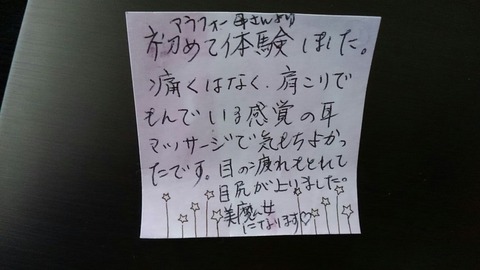 アラフォー母さんより
初めて体験しました。
痛くはなく、肩こりで
もんでいる感覚の耳
マッサージで気もちよかっ
たです。目の疲れもとれて
目尻が上りました。
美魔女
になります♡